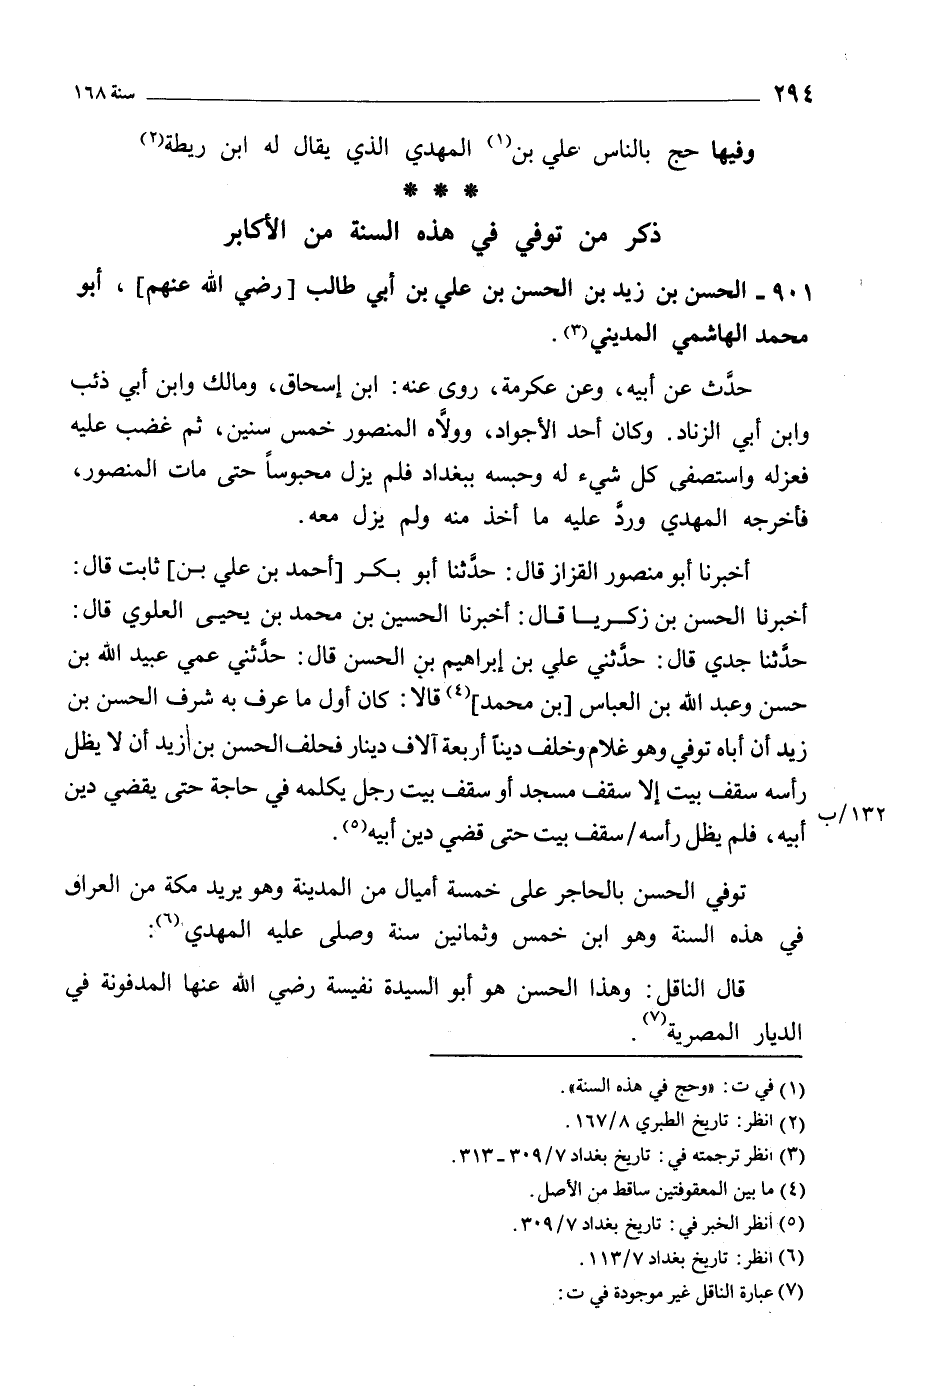 ٢٩٤ سنة ١٦٨
وفيها حج بالناس علي بن(١) المهدي الذي يقال له ابن ريطة(٢)
* * *
ذكر من توفي في هذه السنة من الأكابر
٩٠١ ـ الحسن بن زيد بن الحسن بن علي بن أبي طالب [رضي الله عنهم] ، أبو
محمد الهاشمي المديني(٣) .
حدَّث عن أبيه، وعن عكرمة، روى عنه: ابن إسحاق، ومالك وابن أبي ذئب
وابن أبي الزناد. وكان أحد الأجواد، وولَّاه المنصور خمس سنين، ثم غضب عليه
فعزله واستصفى كل شيء له وحبسه ببغداد فلم يزل محبوساً حتى مات المنصور،
فأخرجه المهدي وردَّ عليه ما أخذ منه ولم يزل معه.
أخبرنا أبو منصور القزاز قال: حدَّثنا أبو بكر [أحمد بن علي بن] ثابت قال:
أخبرنا الحسن بن زكريا قال: أخبرنا الحسين بن محمد بن يحيى العلوي قال:
حدَّثنا جدي قال: حدَّثني علي بن إبراهيم بن الحسن قال: حدَّثني عمي عبيد الله بن
حسن وعبد الله بن العباس [بن محمد](٤) قالا: كان أول ما عرف به شرف الحسن بن
زيد أن أباه توفي وهو غلام وخلف ديناً أربعة آلاف دينار فحلف الحسن بن زيد أن لا يظل
رأسه سقف بيت إلا سقف مسجد أو سقف بيت رجل يكلمه في حاجة حتى يقضي دين
١٣٢/ب
أبيه، فلم يظل رأسه/سقف بيت حتى قضي دين أبيه(٥).
توفي الحسن بالحاجر على خمسة أميال من المدينة وهو يريد مكة من العراق
في هذه السنة وهو ابن خمس وثمانين سنة وصلى عليه المهدي(٦):
قال الناقل: وهذا الحسن هو أبو السيدة نفيسة رضي الله عنها المدفونة في
الديار المصرية(٧) .
(١) في ت: «وحج في هذه السنة».
(٢) انظر: تاريخ الطبري ١٦٧/٨ .
(٣) انظر ترجمته في: تاريخ بغداد ٣٠٩/٧ ـ ٣١٣.
(٤) ما بين المعقوفتين ساقط من الأصل.
(٥) أنظر الخبر في: تاريخ بغداد ٣٠٩/٧.
(٦) انظر: تاريخ بغداد ١١٣/٧ .
(٧) عبارة الناقل غير موجودة في ت: